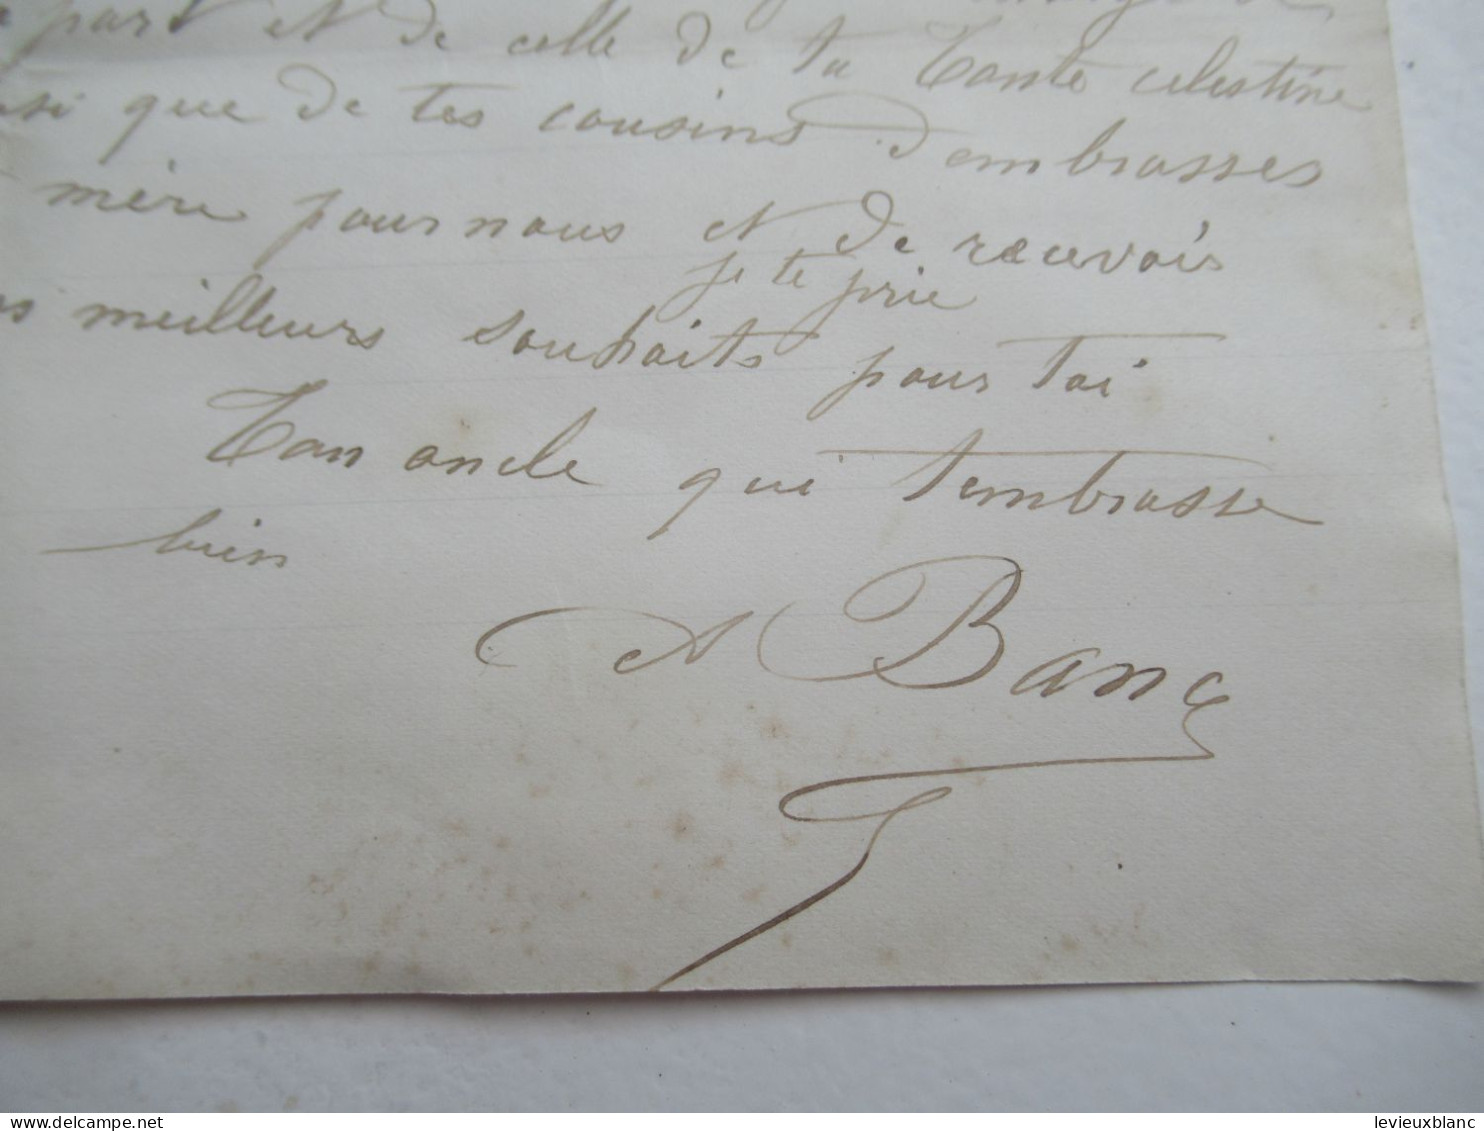 part et de celle de ta Tante celestine
que de tes cousins d'embrasses
mère pour nous et de recevois
je te prie
meilleurs souhaits pour toi
Ton oncle qui t'embrasse
bien
A Banc
www.delcampe.net
levieuxblanc